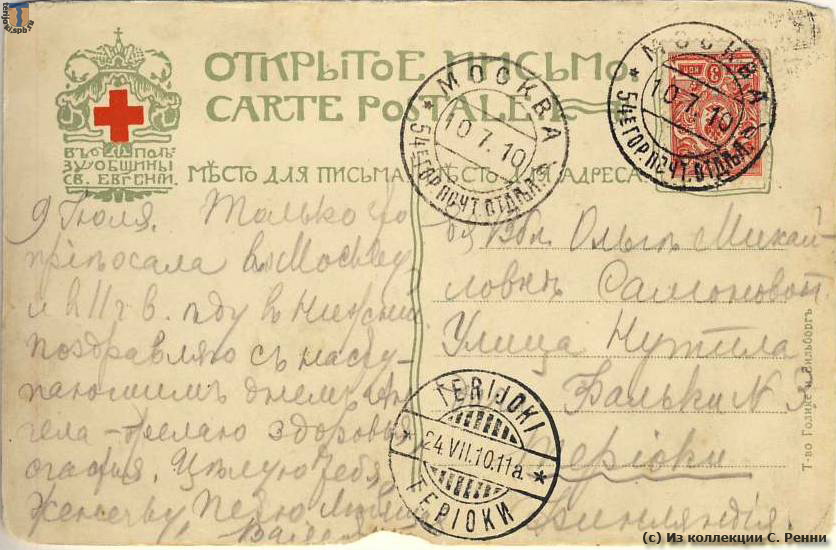 terijoki.spb.ru
ОТКРЫТОЕ ПИСЬМО.
CARTE POSTALE.
ВЪ ПОЛЬ-
ЗУ ОБЩИНЫ
СВ. ЕВГЕНІИ.
МѢСТО ДЛЯ ПИСЬМА. МѢСТО ДЛЯ АДРЕСА.
МОСКВА
10.7.10
54Е ГОР. ПОЧТ. ОТДѢЛ.
МОСКВА
10.7.10
54Е ГОР. ПОЧТ. ОТДѢЛ.
3
КОП
9 Іюля. Только что
пріѣхала въ Москву
и въ 11 ч. в. ѣду въ Нижній
поздравляю съ насту-
пающимъ днемъ Ан-
гела - желаю здоровья
Цѣлую тебя,
Женечку
Ольгѣ Михай-
ловнѣ
Улица
№ 3
Теріоки
Финляндія.
TERIJOKI
24.VII.10.11a.
ТЕРІОКИ
Т-во Голике и Вильборгъ
(c) Из коллекции С. Ренни